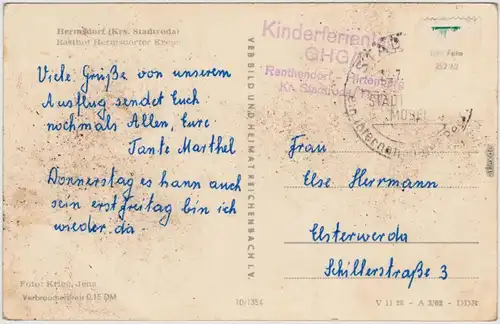 Hermsdorf (Krs. Stadtroda)
Rasthof Hermsdorfer Kreuz
Viele Grüße von unserem
Ausflug sendet Euch
nochmals Allen, Eure
Tante Marthel
Donnerstag es kann auch
sein erst Freitag bin ich
wieder da.
Foto: Krieg, Jena
Verbraucherpreis 0,15 DM
VEB BILD UND HEIMAT REICHENBACH I. V.
10/1354
Kinderferienlager
GHG
Renthendorf
Kr. Stadtroda
STADT
MOSEL
Frau
Else Herrmann
Elsterwerda
Schillerstraße 3
V 11 28 - A 2/62 - DDR